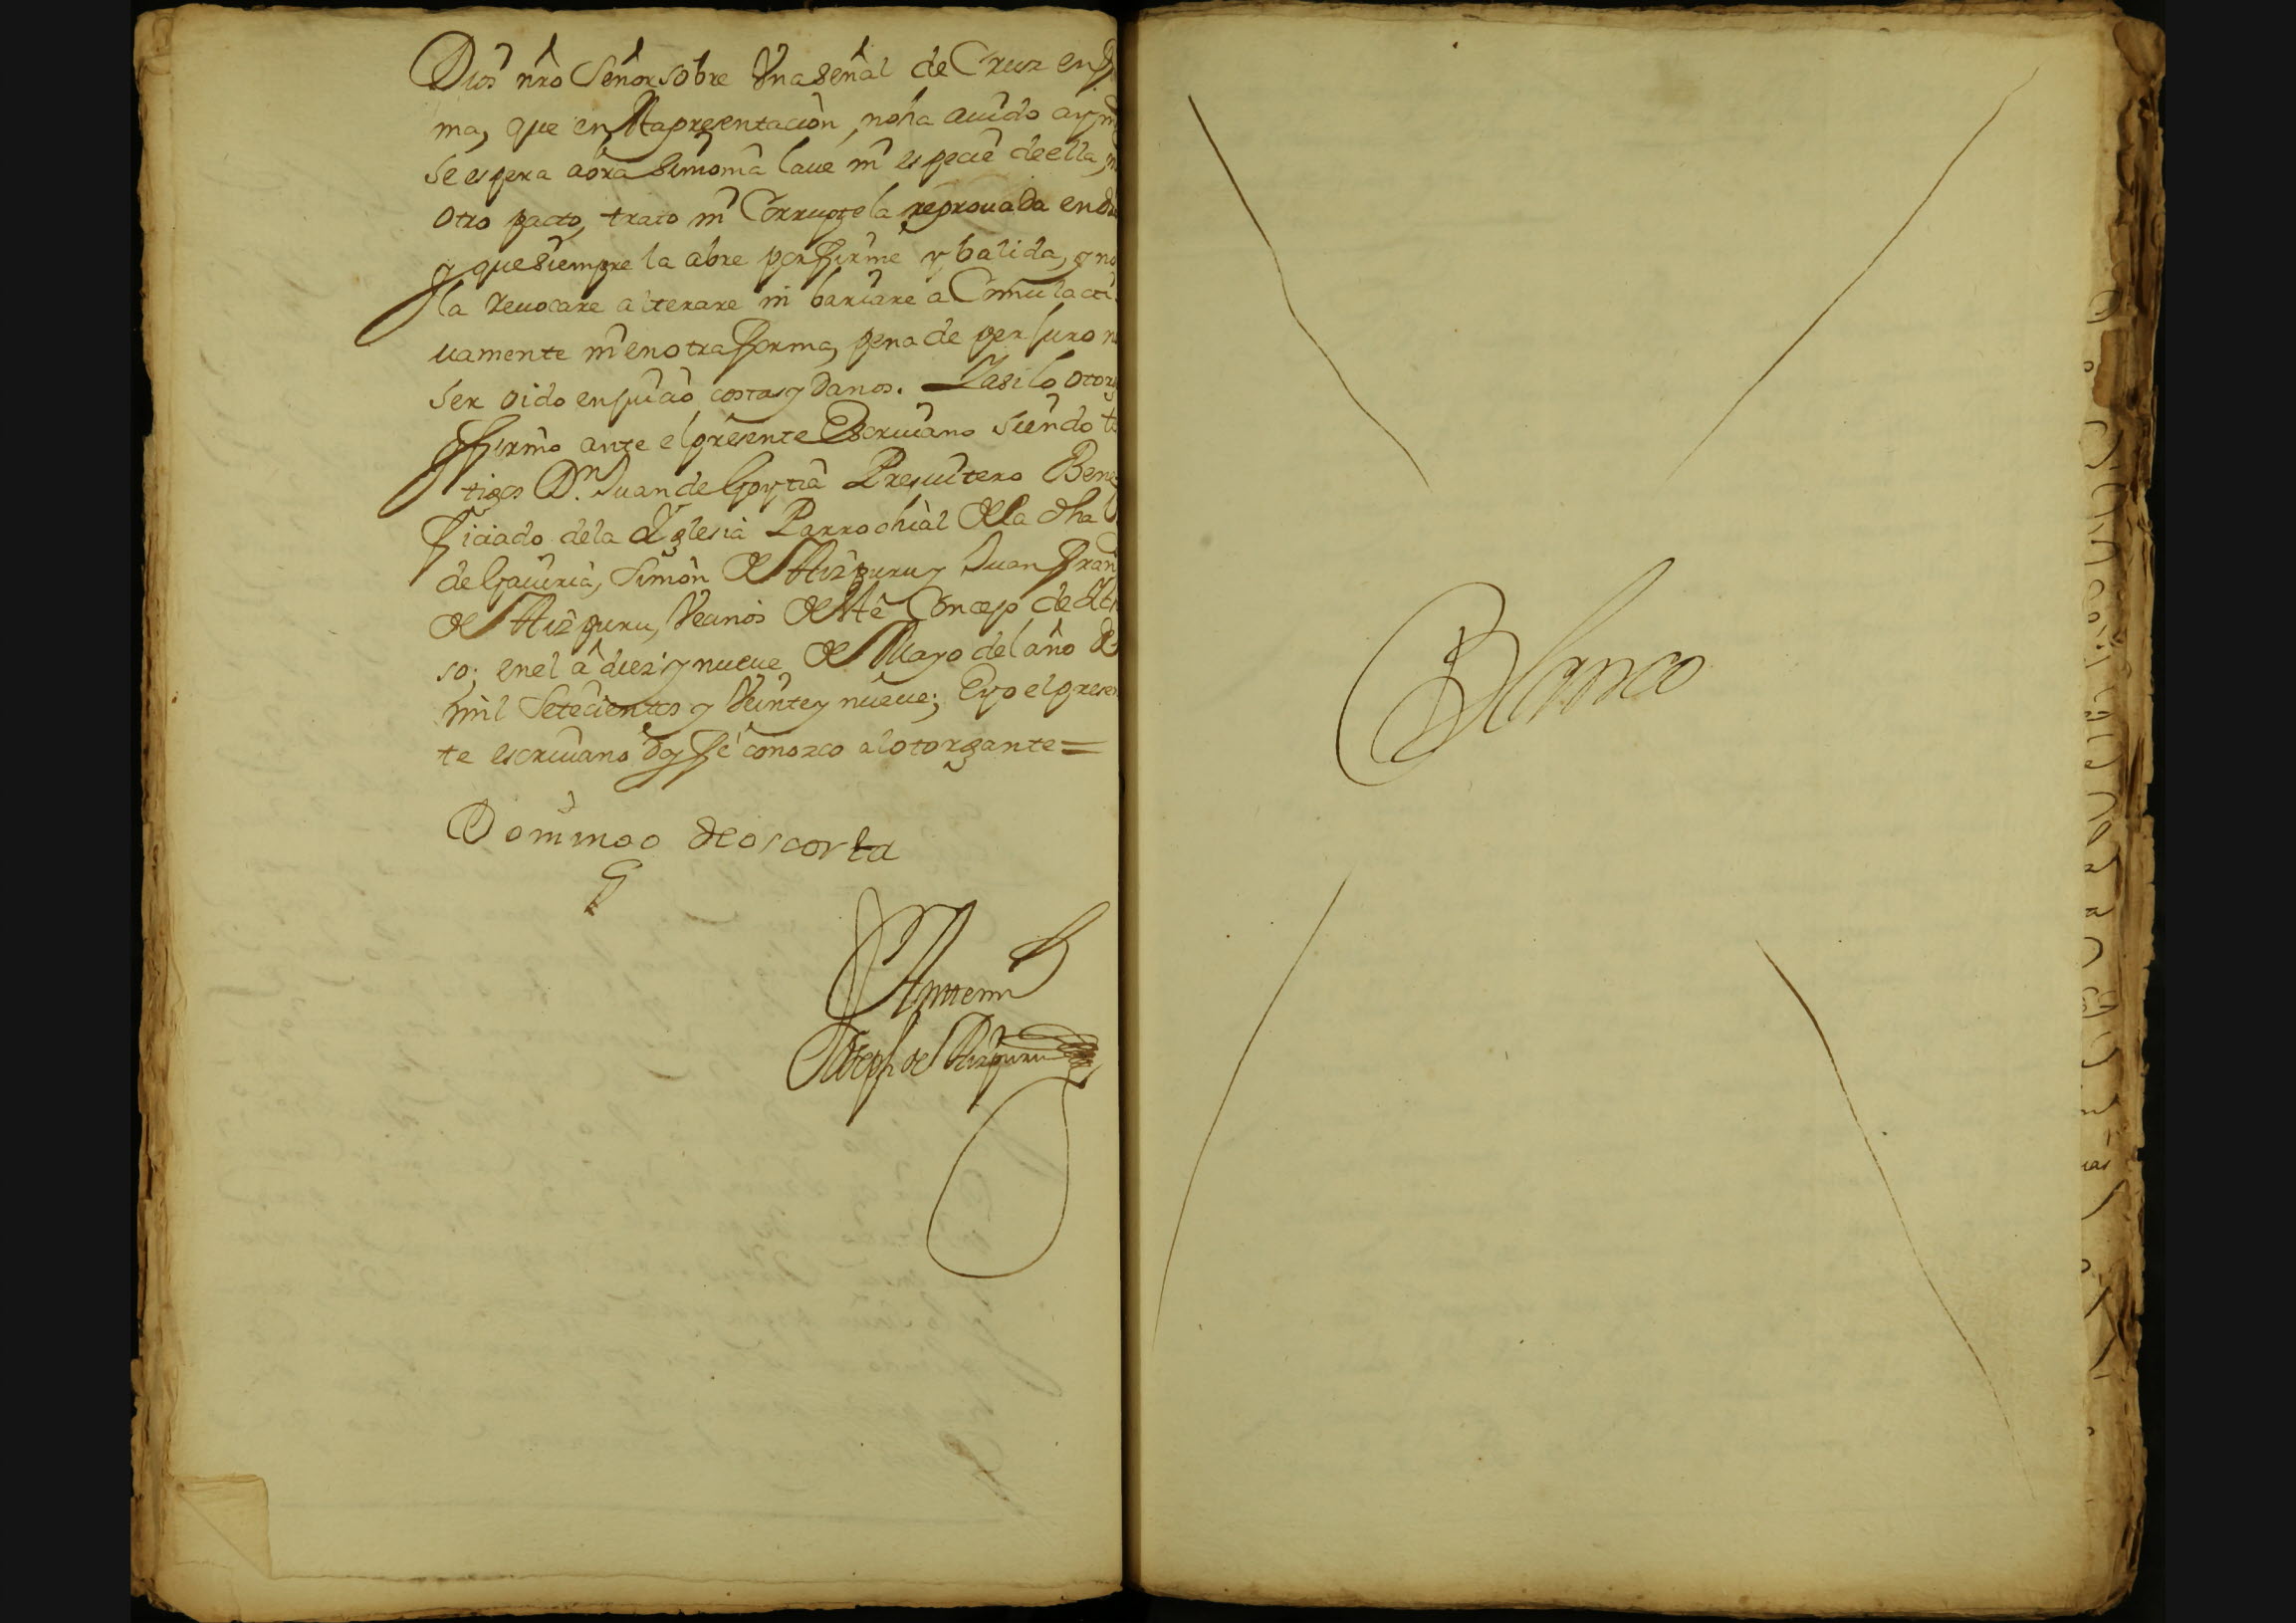 Dios nr̃o Señor sobre Vna señal de Cruz en
ma, que en Esta presentacion, no ha auido ay
se espera aora Simonia laue ni especie de ella,
otro pacto, trato ni Corruptela reprouada en
y que siempre la abre por firme y balida, y no
la reuocare alterare ni bariare a
uamente ni en otra forma, pena de perjuro
ser oido en juiçio costas y Danos. Yasi lo otor
y firmo ante el presente Escriuano siendo te
tigos Dn. Juan de Goytia Presuitero Bene
ficiado dela Yglesia Parrochial dela dha
de Gauiria, Simon de Aizpuru y Juan Fran
de Aizpuru, Vecinos deste Concejo de
so; en el a diez y nueue de Mayo del año de
mil Setecientos y Veinte y nueue; E yo el presen
te escriuano doy fe conozco al otorgante =
Domingo de oscorta
Antemi
Joseph de Aizpuru
Blanco